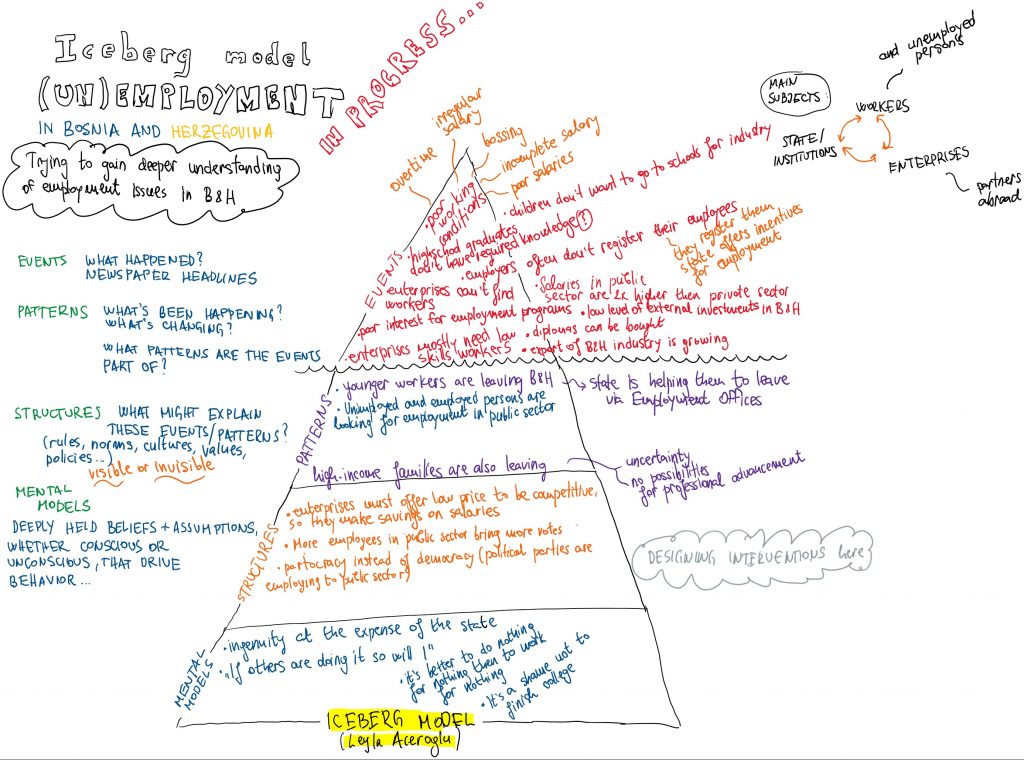 Iceberg model
(UN)EMPLOYMENT
IN BOSNIA AND HERZEGOVINA
Trying to gain deeper understanding
of employment issues in B&H
IN PROGRESS...
EVENTS WHAT HAPPENED?
NEWSPAPER HEADLINES
PATTERNS WHAT'S BEEN HAPPENING?
WHAT'S CHANGING?
WHAT PATTERNS ARE THE EVENTS
PART OF?
STRUCTURES WHAT MIGHT EXPLAIN
THESE EVENTS/PATTERNS?
(rules, norms, cultures, values,
policies...)
visible or invisible
MENTAL
MODELS
DEEPLY HELD BELIEFS + ASSUMPTIONS,
WHETHER CONSCIOUS OR
UNCONSCIOUS, THAT DRIVE
BEHAVIOR...
MAIN
SUBJECTS:
and unemployed
persons
WORKERS
STATE/
INSTITUTIONS
ENTERPRISES
partners
abroad
overtime
irregular
salary
bossing
incomplete salary
poor salaries
EVENTS
• poor working
conditions
• children don't want to go to schools for industry
• highschool graduates
don't have required knowledge(?)
• employers often don't register their employees
they register them
state offers incentives
for employment
• enterprises can't find
workers
• Salaries in public
sector are 2x higher then private sector
• poor interest for employment programs
• low level of external investments in B&H
• enterprises mostly need low
skills workers
• diplomas can be bought
• export of B&H industry is growing
PATTERNS
• younger workers are leaving B&H
State is helping them to leave
via Employment Offices
• Unimployed and employed persons are
looking for employment in public sector
high-income families are also leaving
uncertainty
no possibilities
for professional advancement
STRUCTURES
• enterprises must offer low price to be competitive,
so they make savings on salaries
• More employees in public sector bring more votes
• partocracy instead of democracy (political parties are
employing to public sector)
DESIGNING INTERVENTIONS here
MENTAL
MODELS
• ingenuity at the expense of the state
• "If others are doing it so will I"
• it's better to do nothing
for nothing then to work
for nothing
• It's a shame not to
finish college
ICEBERG MODEL
(Leyla Aceroglu)